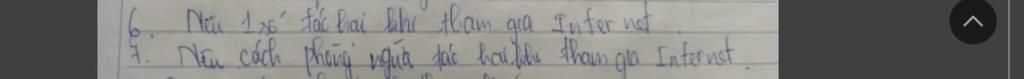 6. Nêu 1 số tác hại khi tham gia Internet
7. Nêu cách phòng ngừa tác hại khi tham gia Internet.